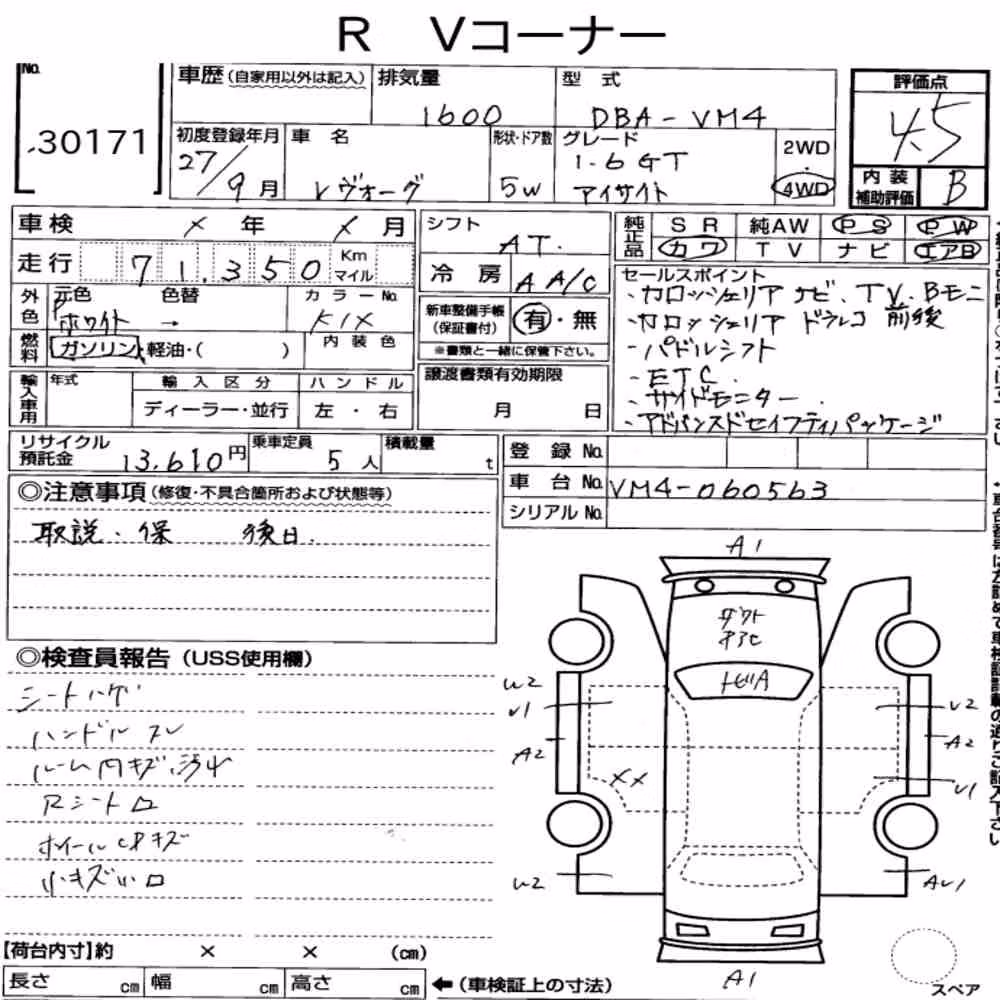 R Vコーナー
No.
30171
車歴 (自家用以外は記入)
排気量
1600
型 式
DBA-VM4
評価点
4.5
初度登録年月
27/9月
車 名
レヴォーグ
形状・ドア数
5W
グレード
1.6GT
アイサイト
2WD
・
4WD
内 装
補助評価
B
車検
× 年 × 月
シフト
AT.
純正品
S R 純AW P S P W
カワ T V ナ ビ エアB
走行
71.350
Km
マイル
冷 房
A A/C
セールスポイント
・カロッツェリア ナビ、TV、Bモニ
・カロッツェリア ドラレコ 前後
・パドルシフト
・ETC.
・サイドモニター
・アドバンスドセイフティパッケージ
外色
元色
ホワイト
色替
→
カラーNo.
K1X
新車整備手帳
(保証書付)
有・無
※書類と一緒に保管下さい。
燃料
ガソリン・軽油・( )
内 装 色
輸入車用
年式
輸 入 区 分
ディーラー・並行
ハ ン ド ル
左 ・ 右
譲渡書類有効期限
月 日
リサイクル
預託金
13,610円
乗車定員
5人
積載量
t
登 録 No.
車 台 No.
VM4-060563
シリアル No.
◎注意事項 (修復・不具合箇所および状態等)
取説・保 後日.
◎検査員報告 (USS使用欄)
シートハゲ
ハンドルスレ
ルーム内キズ汚れ
Rシートロ
ホイールCPキズ
小キズ小ロ
A1
トビA
U2
U1
A2
××
U2
U2
A2
U1
AU1
A1
【荷台内寸】約 × × (cm)
長さ cm 幅 cm 高さ cm ←(車検証上の寸法)
スペア